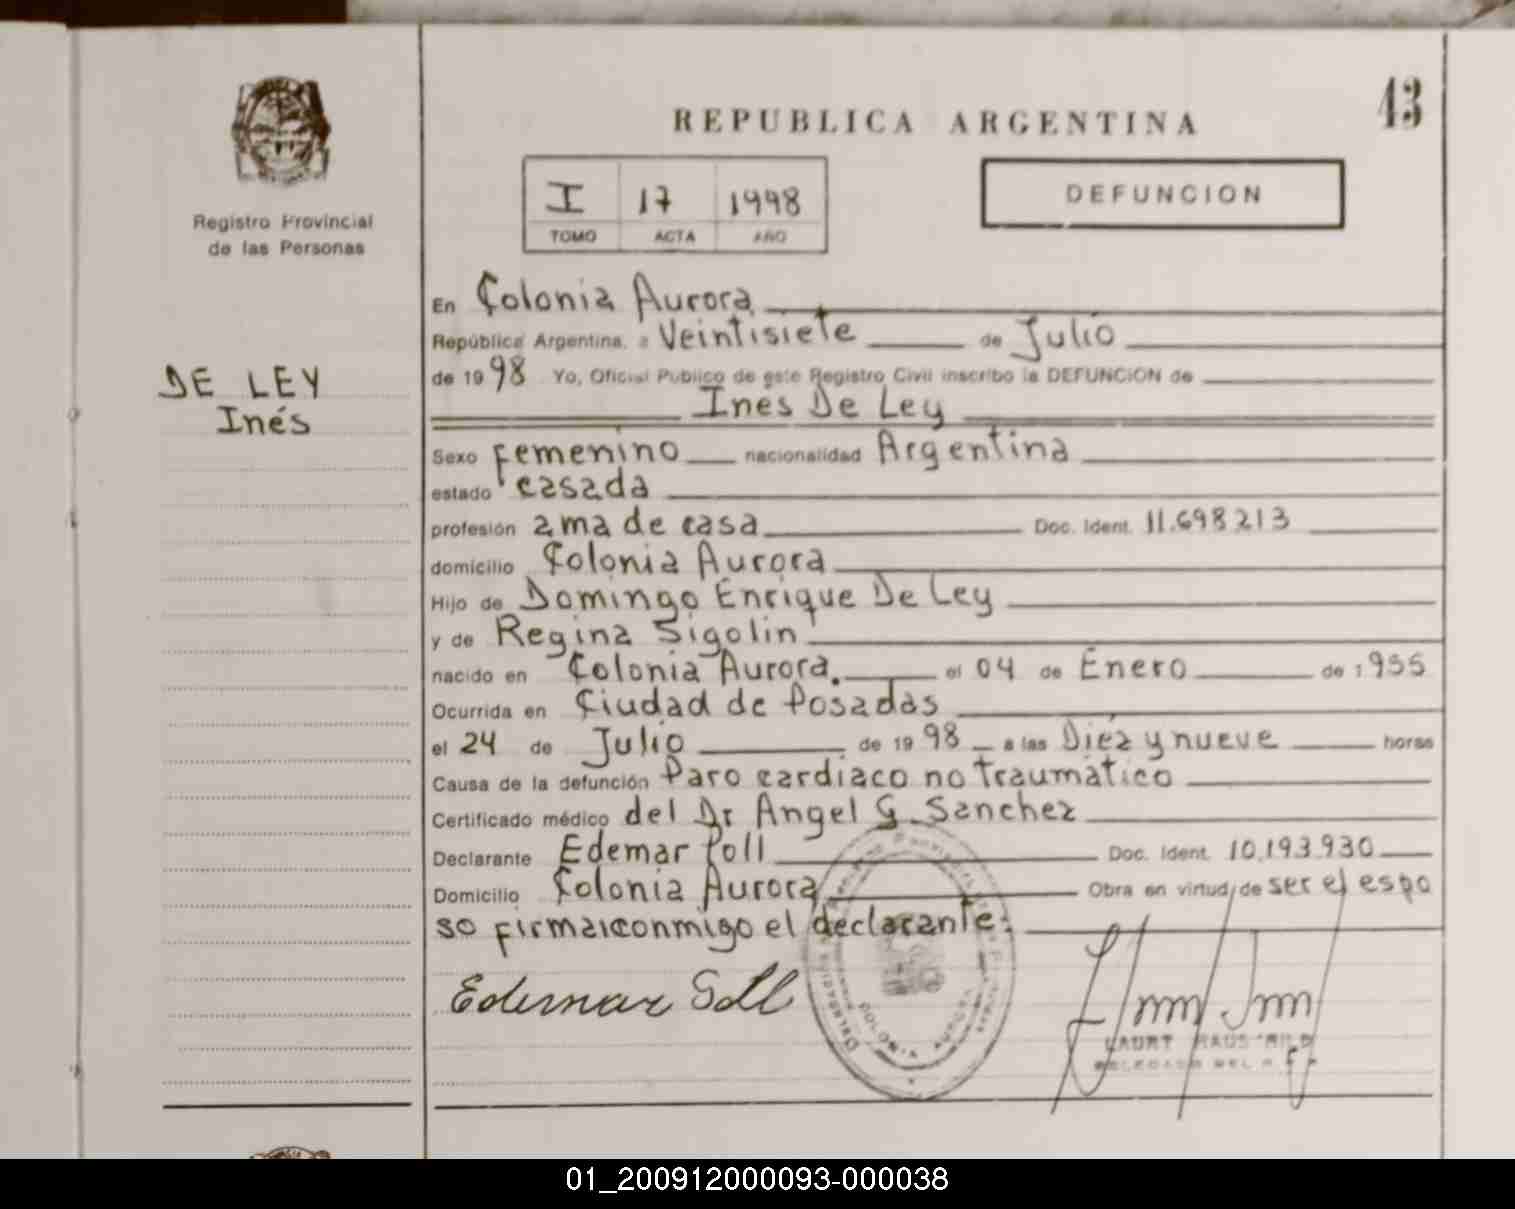 43
REPUBLICA ARGENTINA
I 17 1998
TOMO ACTA AÑO
DEFUNCION
Registro Provincial
de las Personas
DE LEY
Inés
En Colonia Aurora
República Argentina, a Veintisiete de Julio
de 1998 Yo, Oficial Público de este Registro Civil inscribo la DEFUNCION de
Ines De Ley
Sexo femenino nacionalidad Argentina
estado casada
profesión ama de casa Doc. Ident. 11.698213
domicilio Colonia Aurora
Hijo de Domingo Enrique De Ley
y de Regina Sigolin
nacido en Colonia Aurora. el 04 de Enero de 1955
Ocurrida en Ciudad de Posadas
el 24 de Julio de 1998 a las Diez y nueve horas
Causa de la defunción Paro cardiaco no traumático
Certificado médico del Dr Angel G. Sanchez
Declarante Edemar Poll Doc. Ident. 10,193.930
Domicilio Colonia Aurora Obra en virtud de ser el espo
so firma conmigo el declarante.
Edemar
COLONIA AURORA
01_200912000093-000038